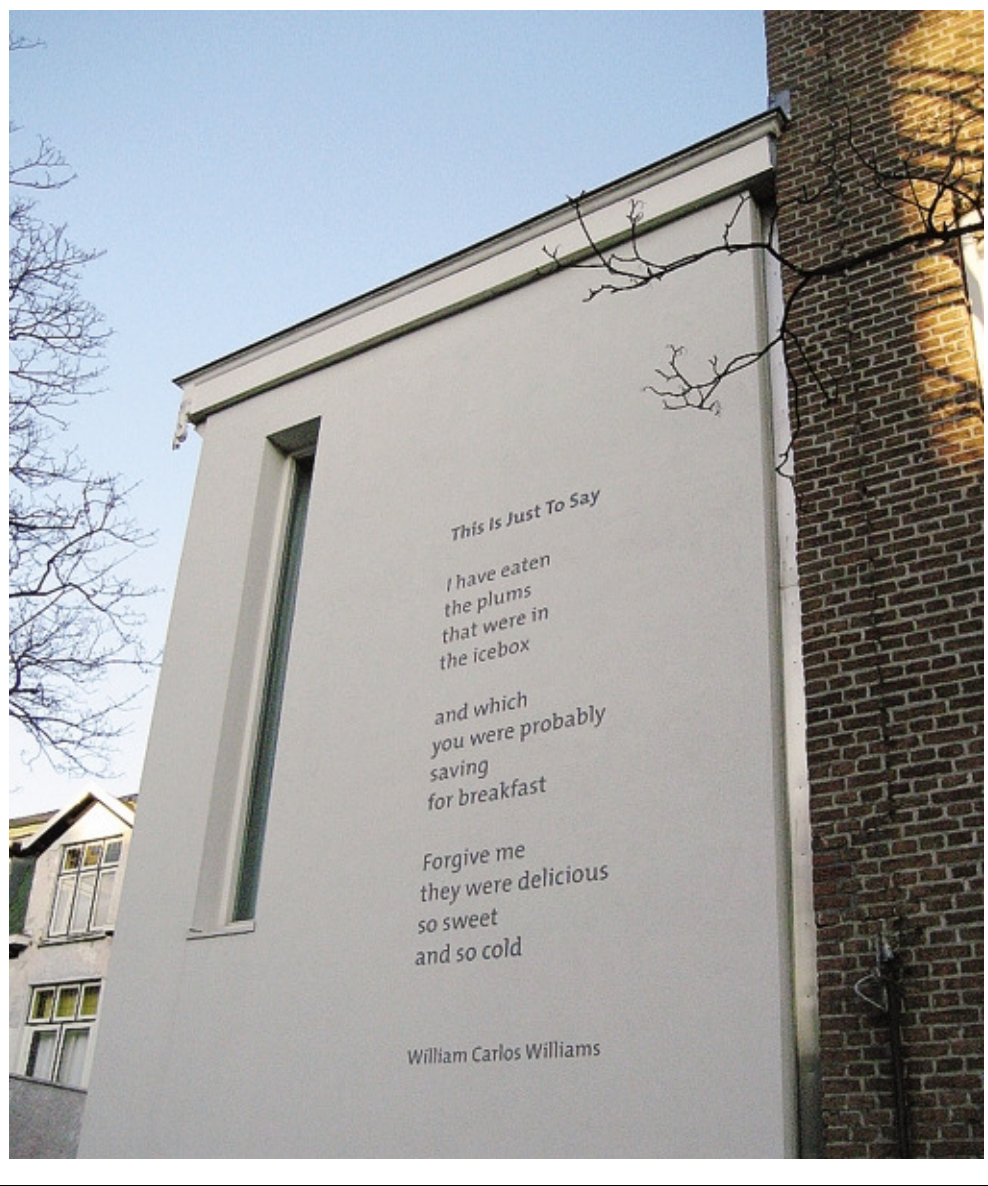 This Is Just To Say
I have eaten
the plums
that were in
the icebox
and which
you were probably
saving
for breakfast
Forgive me
they were delicious
so sweet
and so cold
William Carlos Williams